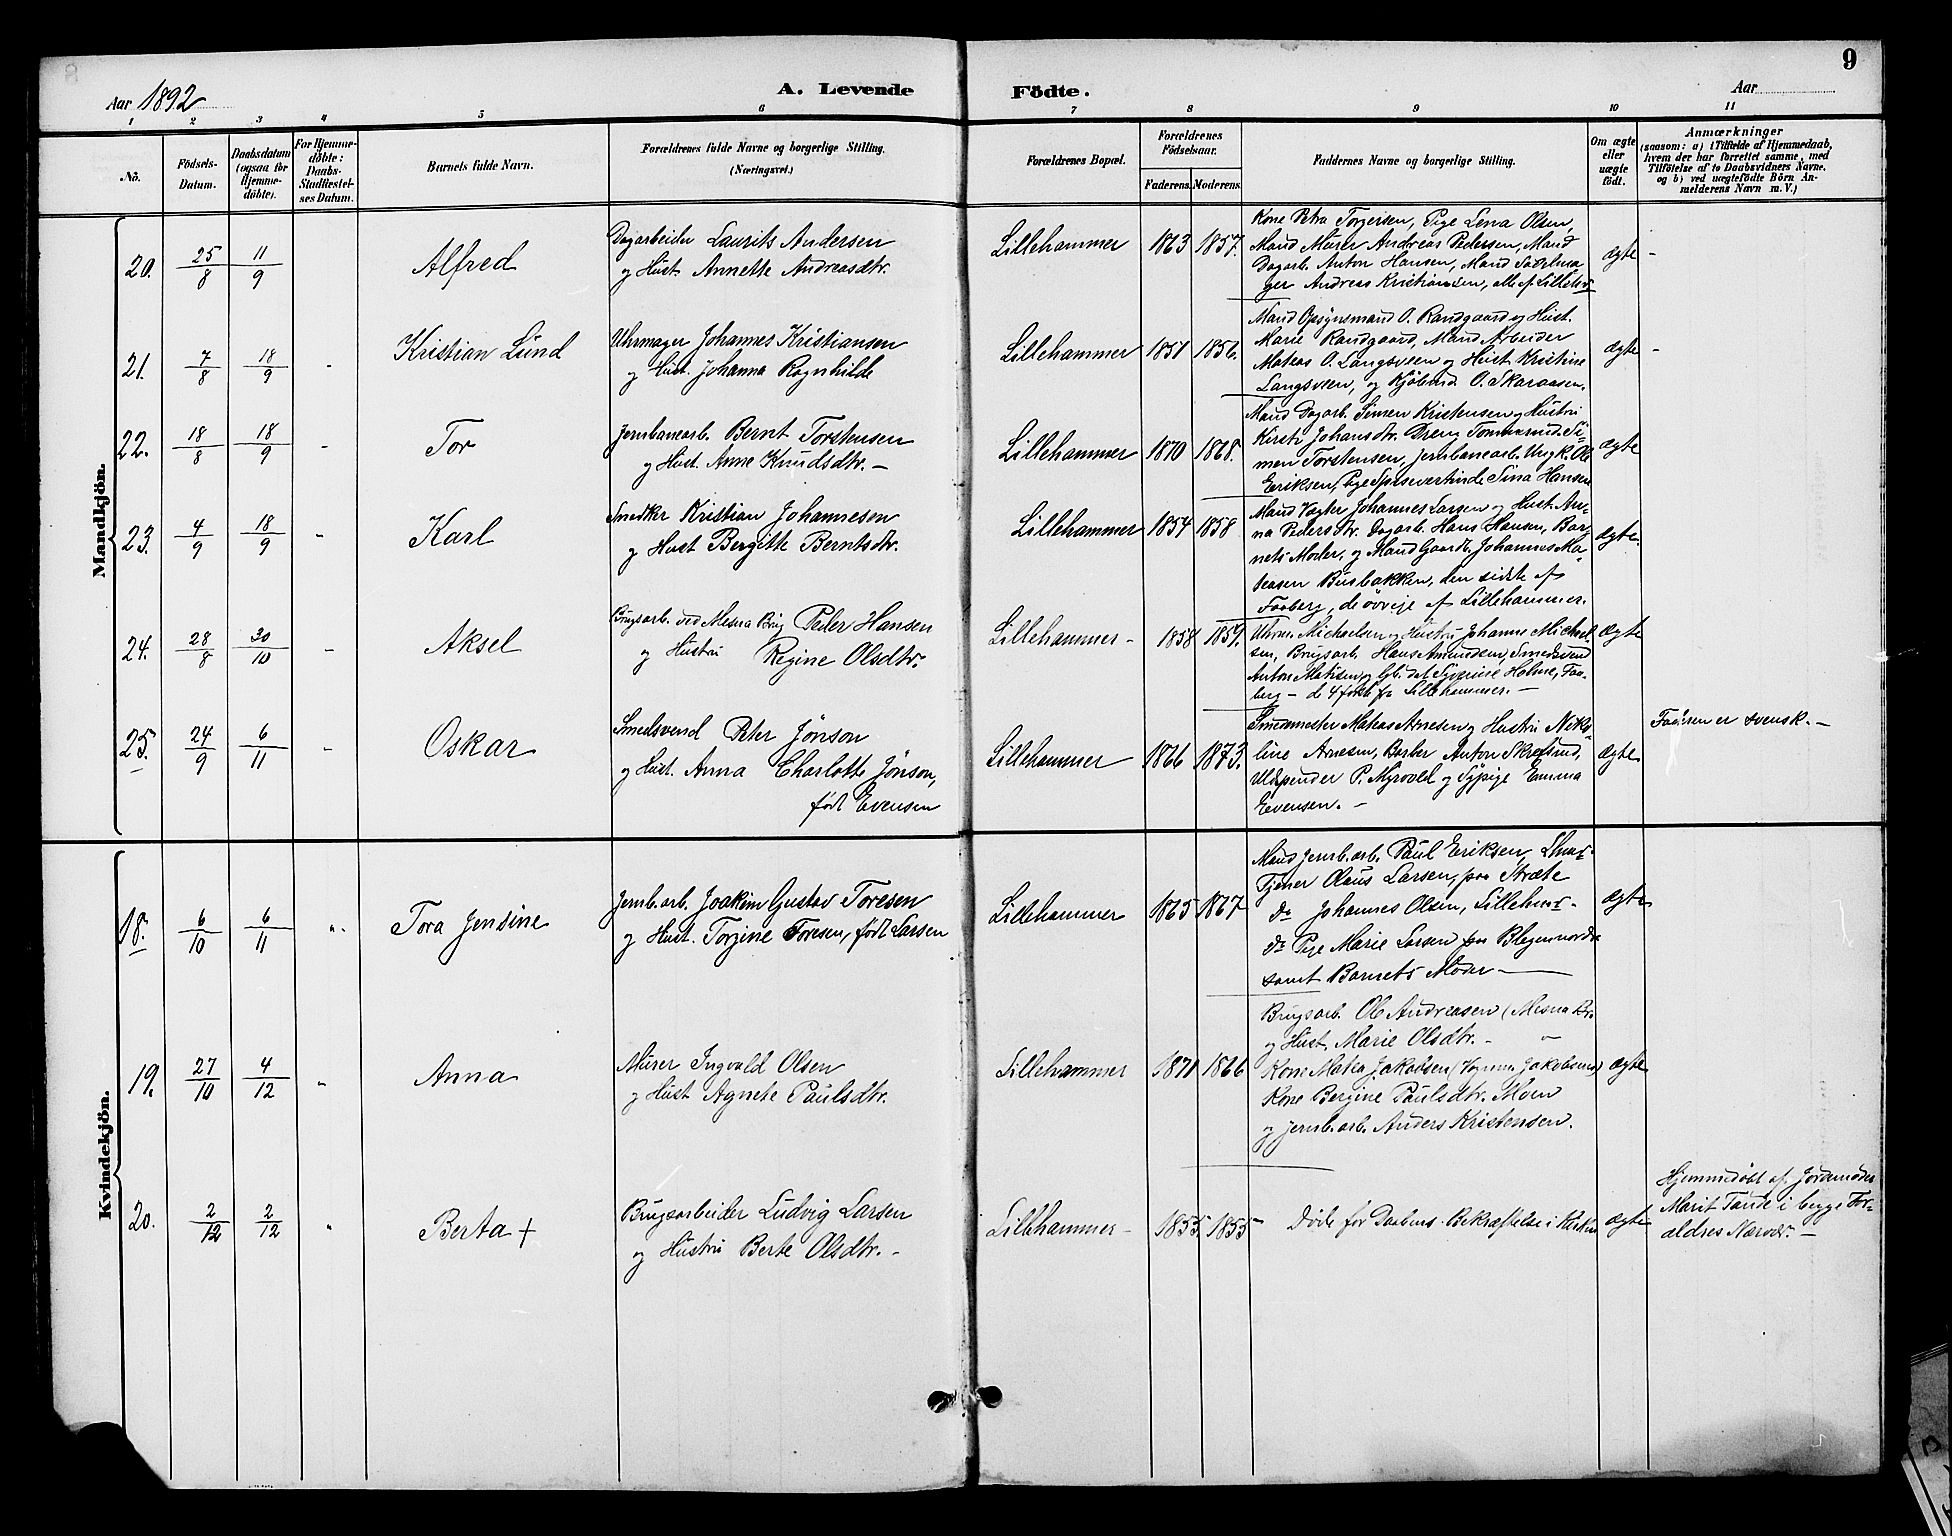 9
Aar 1892
A. Levende
Födte.
Aar
1 2 3 4 5 6 7 8 9 10 11
No.
Födsels-
Datum.
Daabsdatum
(ogsaa for
Hjemme-
döbte).
For Hjemme-
döbte:
Daabs-
Stadfæstel-
ses Datum.
Barnets fulde Navn.
Forældrenes fulde Navne og borgerlige Stilling.
(Næringsvei.)
Forældrenes Bopæl.
Forældrenes
Födselsaar.
Faderens.
Moderens.
Faddernes Navne og borgerlige Stilling.
Om ægte
eller
uægte
födt.
Anmærkninger
(saasom: a) i Tilfælde af Hjemmedaab,
hvem der har forrettet samme, med
Tilföielse af to Daabsvidners Navne,
og b) ved uægtefödte Börn An-
melderens Navn m. V.)
Mandkjön.
20.
25/8
11/9
Alfred
Dagarbeider Laurits Andersen
og Hust. Annette Andreasdtr.
Lillehammer
1863
1857.
Kone Petra Torgersen, Pige Lena Olsen,
Mand Murer Andreas Pedersen, Mand
Dagarb. Anton Hansen, Mand Sadelma
ger Andreas Kristiansen, alle af Lillehr
ægte
-
21.
7/8
18/9
-
Kristian Lund
Uhrmager Johannes Kristiansen
og Hust. Johanna Ragnhilde
Lillehammer
1851
1856.
Mand Opsynsmand O. Randgaard og Hust.
Marie Randgaard, Mand Arbeider
Mateas O. Langsveen og Hust. Kristine
Langsveen, og Kjöbmd. O. Skaraasen.
ægte
-
22.
18/8
18/9
-
Tor
Jernbanearb. Bernt Torstensen
og Hust. Anne Knudsdtr. -
Lillehammer
1870
1868.
Mand Dagarb. Simen Kristensen og Hustru
Kirsti Johansdtr. Dreng Si-
men Torstensen, Jernbanearb. Ungk. Ole
Eriksen, Pige Spisevertinde Sina Hansen
ægte
23.
4/9
18/9
-
Karl
Snedker Kristian Johannesen
og Hust Bergitte Berntsdtr.
Lillehammer
1854
1858
Mand Vagter Johannes Larsen og Hust. An-
na Pedersdtr. Dagarb. Hans Hansen, Bar-
nets Moder, og Mand Gaardb. Johannes Ma-
teasen Busbakken, den sidste af
Faaberg, de övrige af Lillehammer.
ægte.
24.
28/8
30/10
-
Aksel
Brugsarb. ved Mesna Brug Peder Hansen
og Hustru Regine Olsdtr.
Lillehammer -
1858
1859.
Uhrm. Michaelsen og Hustru Johanne Michael-
sen, Brugsarb. Hans Amundsen, Smedsvend
Anton Matisen og Gb. dat. Syverine Holme, Faa-
berg - de 4 förste fra Lillehammer. -
ægte
25.
24/9
6/11
-
Oskar
Smedsvend Peter Jönson
og Hust. Anna Charlotte Jönson,
født Evensen
Lillehammer
1866
1873.
Smedmester Mateas Arnesen og Hustru Niko-
line Arnesen, Barber Anton Skjelsrud,
Uldspinder P. Myrvold og Sypige Emma
Evensen. -
ægte
Faderen er svensk. -
Kvindekjön.
18.
6/10
6/11
"
Tora Jensine
Jernb.arb. Joakim Gustav Toresen
og Hust. Torgine Toresen, født Larsen
Lillehammer
1865
1867
Mand Jernb.arb. Paul Eriksen, Lhmr-
Tjener Olaus Larsen, paa Stræte
do Johannes Olsen, Lillehmr-
do Pige Marie Larsen paa
samt Barnets Moder -
ægte
19.
27/10
4/12
"
Anna
Murer Ingvald Olsen
og Hust Agnete Paulsdtr.
Lillehammer
1871
1866
Brugsarb. Ole Andreasen (Mesna Br.
og Hust. Marie Olsdtr. - "
Kone Matea Jakobsen ( Jakobsen)
Kone Bergine Paulsdtr. Moen
og jernb.arb. Anders Kristensen.
ægte
20.
2/12
2/12
"
Berta +
Brugsarbeider Ludvig Larsen
og Hustru Berte Olsdtr. -
Lillehammer -
1855.
1855
Døde før Daabens Bekræftelse i Kirken
ægte
Hjemmedöbt af Jordmoder
Marit Tande i begge For-
ældres Nærvær. -